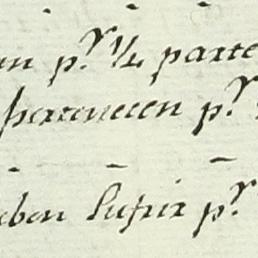 m p.r 1/4 parte
pertenecen p.r
eben Sufrir p.r